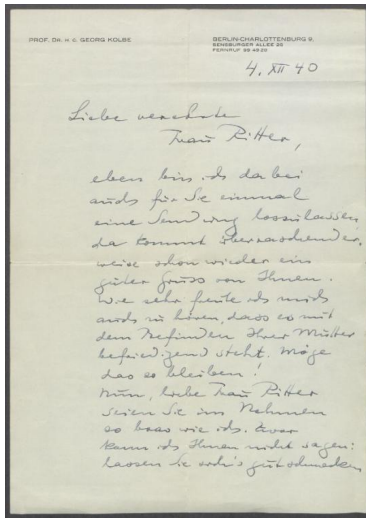 PROF. DR. H. C. GEORG KOLBE
BERLIN-CHARLOTTENBURG 9.
SENSBURGER ALLEE 26
FERNRUF 99 45 20
4. XII 40
Liebe verehrte
Frau Ritter,
eben bin ich dabei
auch für Sie einmal
eine Sendung loszulassen
da kommt überraschender,
weise schon wieder ein
guter Gruss von Ihnen.
Wie sehr freute ich mich
auch zu hören, dass es mit
dem Befinden Ihrer Mutter
befriedigend steht. Möge
das so bleiben!
Nun, liebe Frau Ritter
seien Sie im Nehmen
so brav wie ich. Zwar
kann ich Ihnen nicht sagen:
lassen Sie sich's gut schmecken